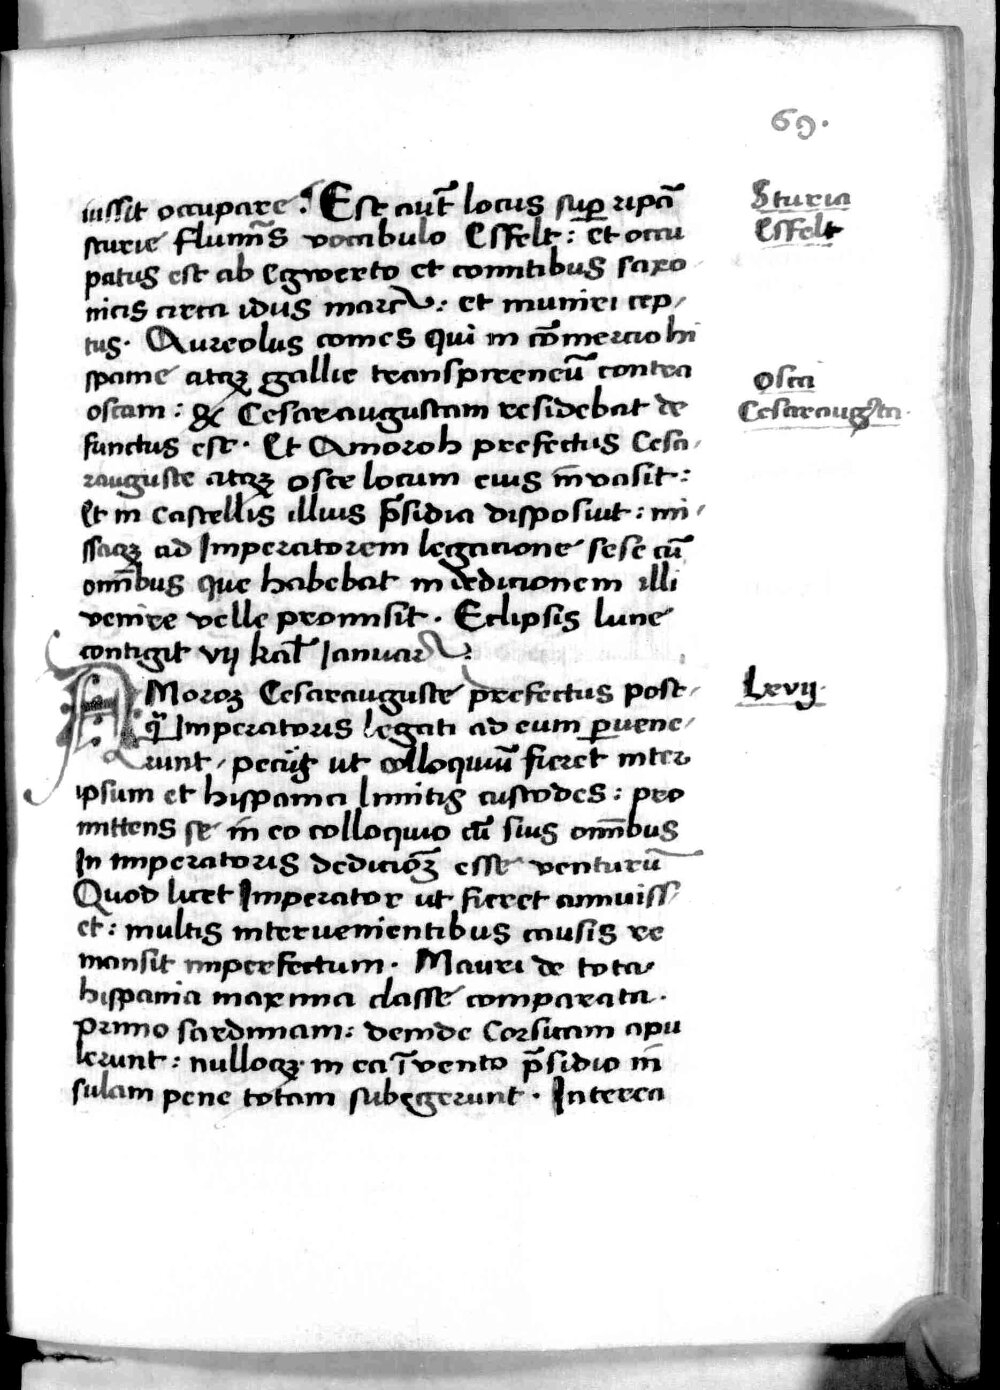 69.
iussit occupare: Est aut̄ locus sup̱ ripā
sturie flumīs vocabulo Esfelt: et occu
patus est ab Egwerto et comitibus saxo
nicis circa idus marcii: et muniri cep/
tus. Aureolus comes qui in cōmercio hi
spanie atqꝫ gallie transpreneū contra
oscam: & Cesaraugustam residebat de
functus est. Et Amoroh prefectus Cesa/
rauguste atqꝫ osce locum eius īnvasit:
Et in castellis illius p̄sidia disposiut: mi/
ssaqꝫ ad Imperatorem legacione sese cū
omībus que habebat in dedicionem illi
venire velle promisit. Eclipsis lune
contigit vij kal̄ Januar
AMoroz Cesarauguste prefectus post/
q̄ Imperatoris legati ad eum p̱uene/
runt, peciit ut colloquiū fieret inter
ipsum et hispania limitis custodes: pro
mittens se in eo colloquio cū suis omībus
In imperatoris dedicioꝫ esse venturū
Quod licet Imperator ut fieret annuiss/
et: multis intervenientibus causis re
mansit imperfectum. Mauri de tota
hispania maxima classe comparata.
primo sardiniam: deinde Corsicam apu
lerunt: nulloqꝫ in ea īvento p̄sidio in
sulam pene totam subegerunt. Interea
Sturia
Esfelt
Osca
Cesaraugꝰta.
Lxvij.